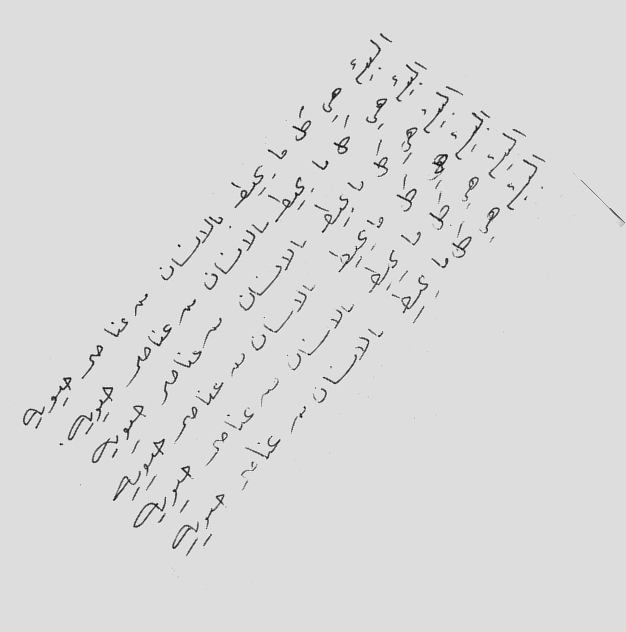 البيئة هي كل ما يحيط بالانسان من عناصر حيوية
البيئة هي كل ما يحيط بالانسان من عناصر حيوية
البيئة هي كل ما يحيط بالانسان من عناصر حيوية
البيئة هي كل ما يحيط بالانسان من عناصر حيوية
البيئة هي كل ما يحيط بالانسان من عناصر حيوية
البيئة هي كل ما يحيط بالانسان من عناصر حيوية